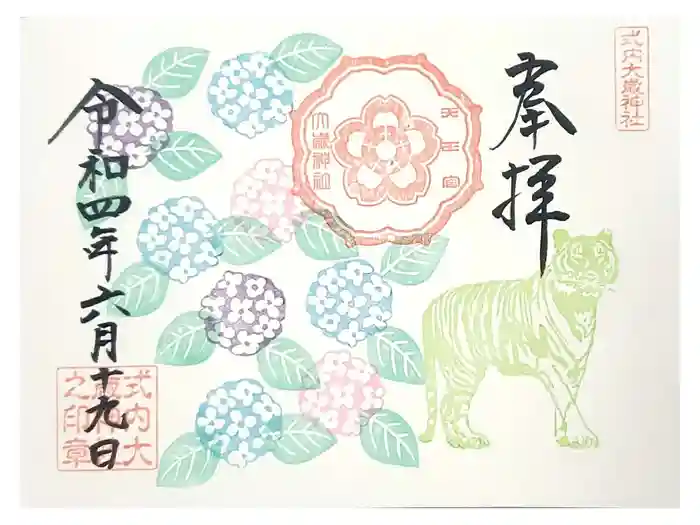 式内大歳神社
奉拝
天王宮
大歳神社
令和四年六月十九日
式内大
歳神社
之印章